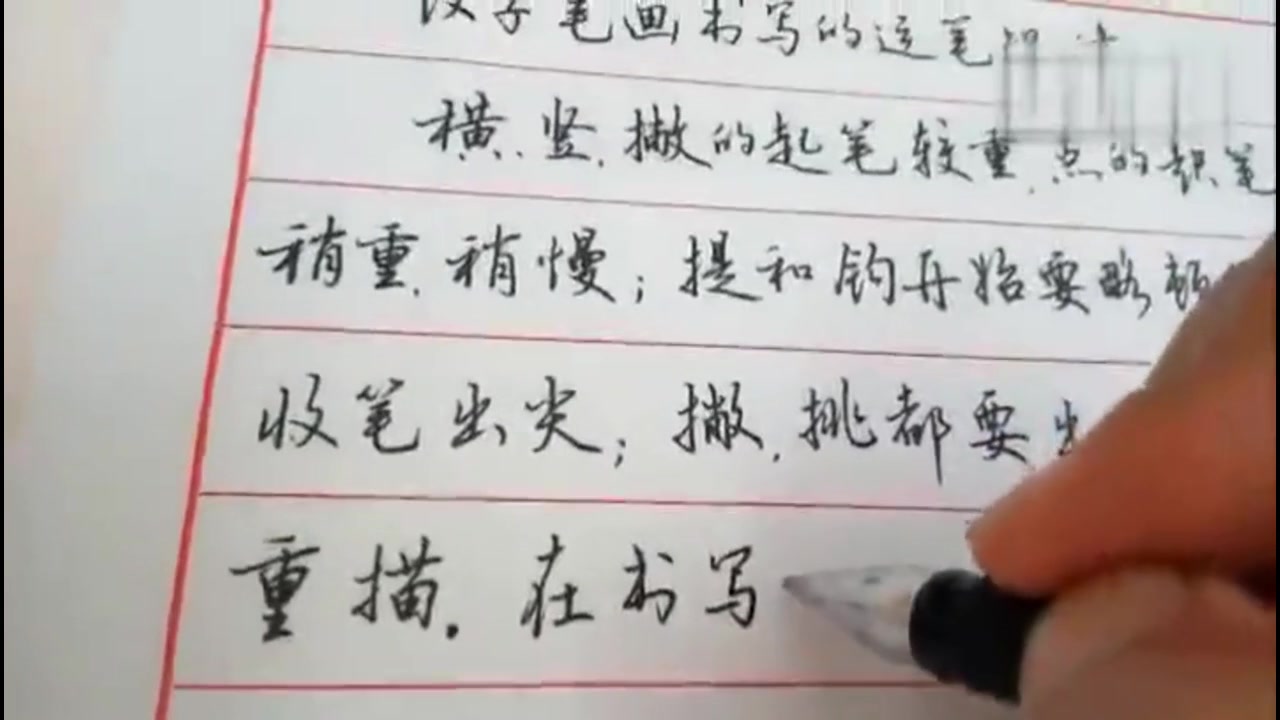 汉字笔画书写的运笔
横、竖、撇的起笔较重,点的起笔
稍重,稍慢;提和钩开始要略顿
收笔出尖;撇、挑都要出
重描.在书写